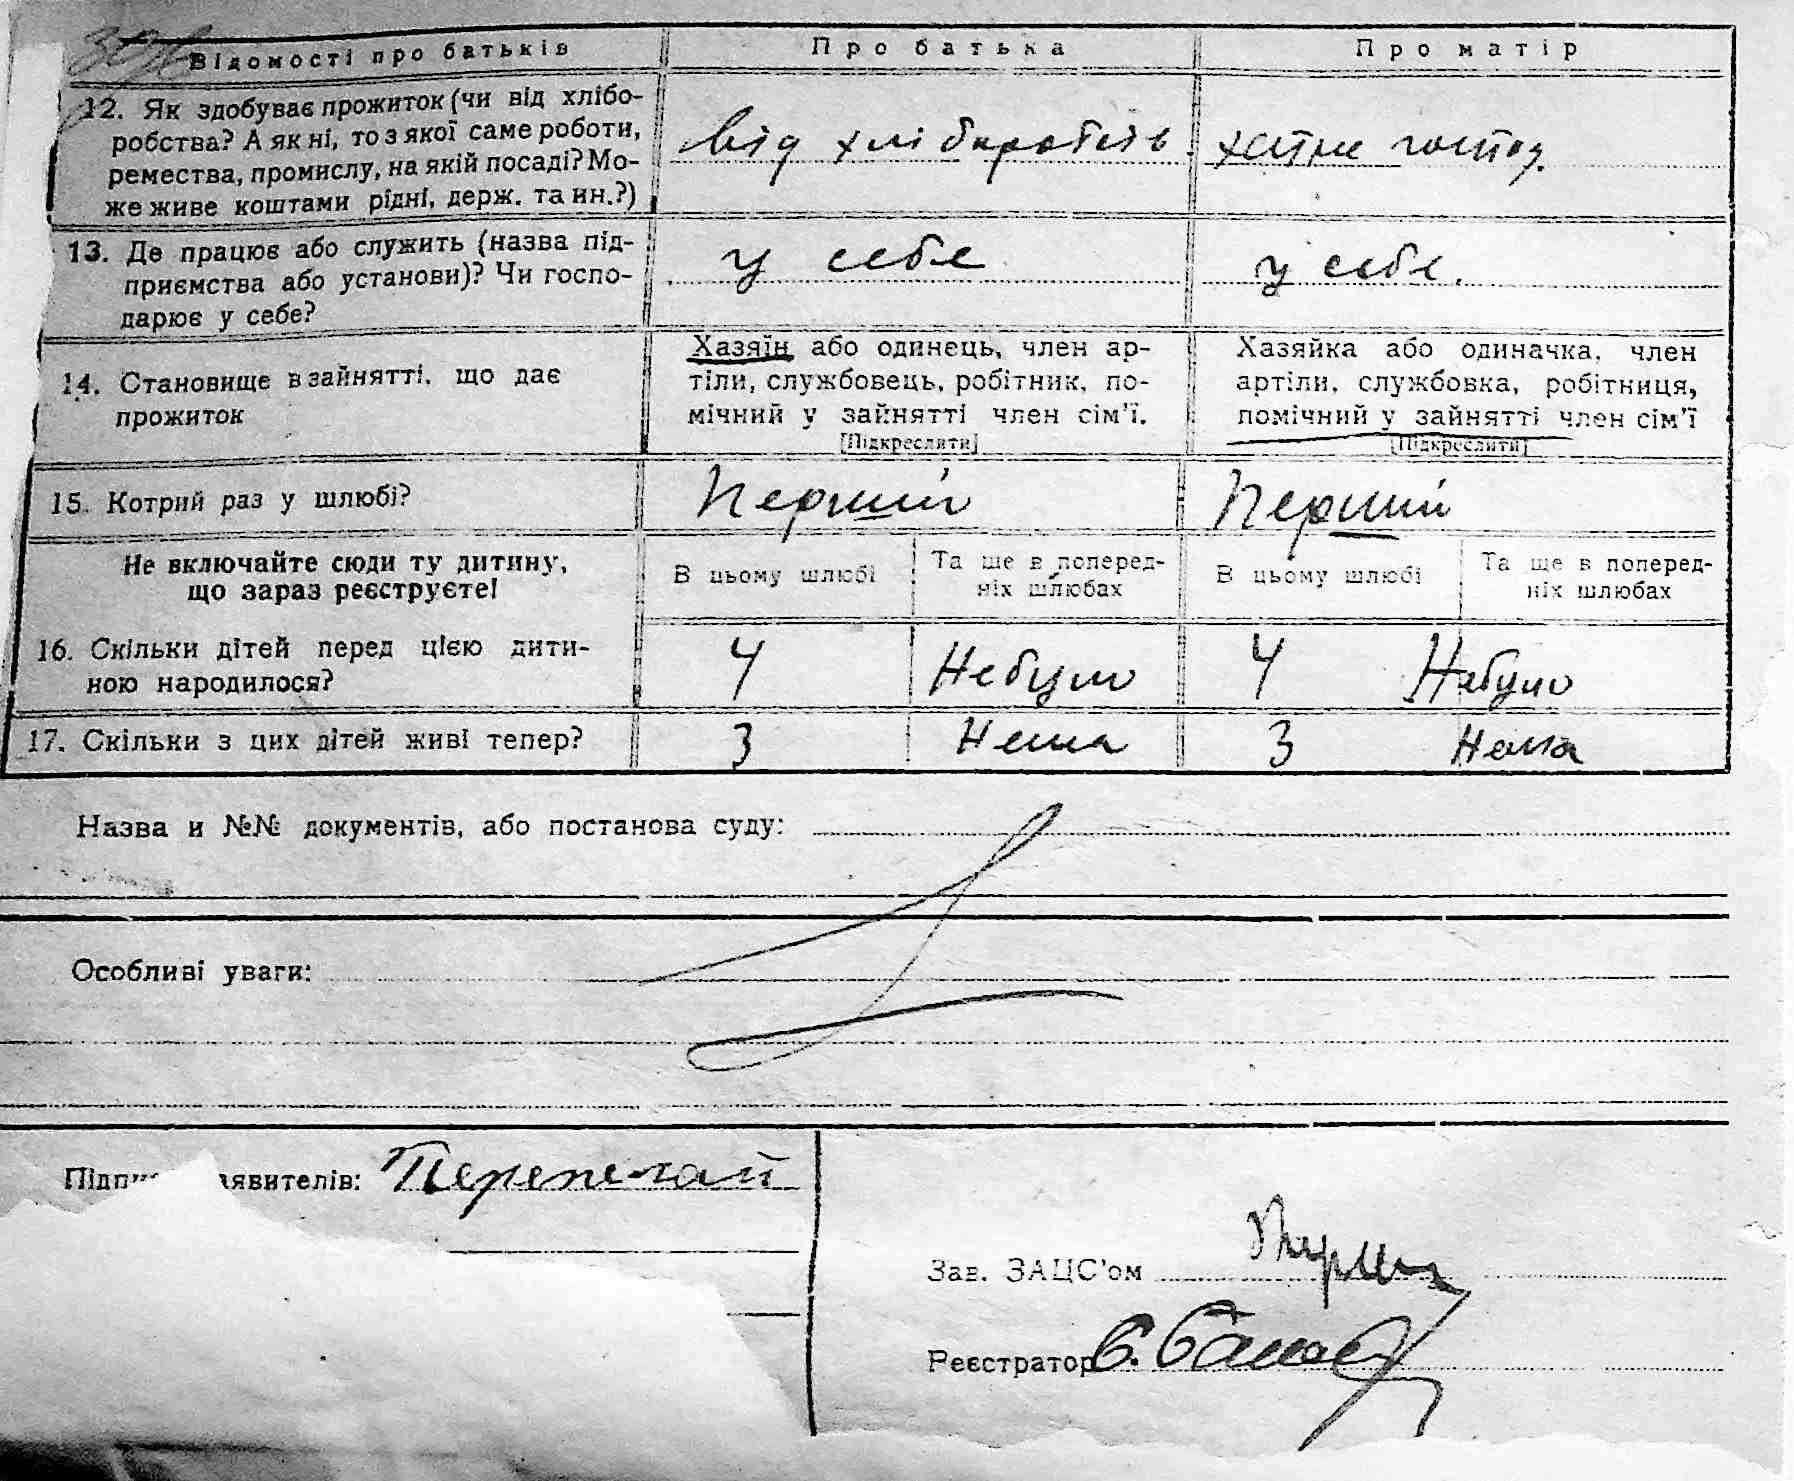 Відомості про батьків
Про батька
Про матір
12. Як здобуває прожиток (чи від хлібо-
робства? А як ні, то з якої саме роботи,
ремества, промислу, на якій посаді? Мо-
же живе коштами рідні, держ. та ин.?)
від хліборобств.
хатне господ.
13. Де працює або служить (назва під-
приємства або установи)? Чи госпо-
дарює у себе?
у себе
у себе.
14. Становище в зайнятті, що дає
прожиток
Хазяїн або одинець, член ар-
тіли, службовець, робітник, по-
мічний у зайнятті член сім'ї.
[Підкреслити]
Хазяйка або одиначка, член
артіли, службовка, робітниця,
помічний у зайнятті член сім'ї
[Підкреслити]
15. Котрий раз у шлюбі?
Перший
Перший
Не включайте сюди ту дитину,
що зараз реєструєте!
В цьому шлюбі
Та ще в поперед-
ніх шлюбах
В цьому шлюбі
Та ще в поперед-
ніх шлюбах
16. Скільки дітей перед цією дити-
ною народилося?
4
Небуло
4
Небуло
17. Скільки з цих дітей живі тепер?
3
Нема
3
Нема
Назва и №№ документів, або постанова суду:
Особливі уваги:
Підпи
аявителів:
Зав. ЗАЦС'ом
Реєстратор